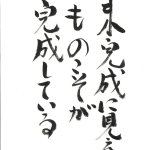 未完成に見え
ものこそが
完成している